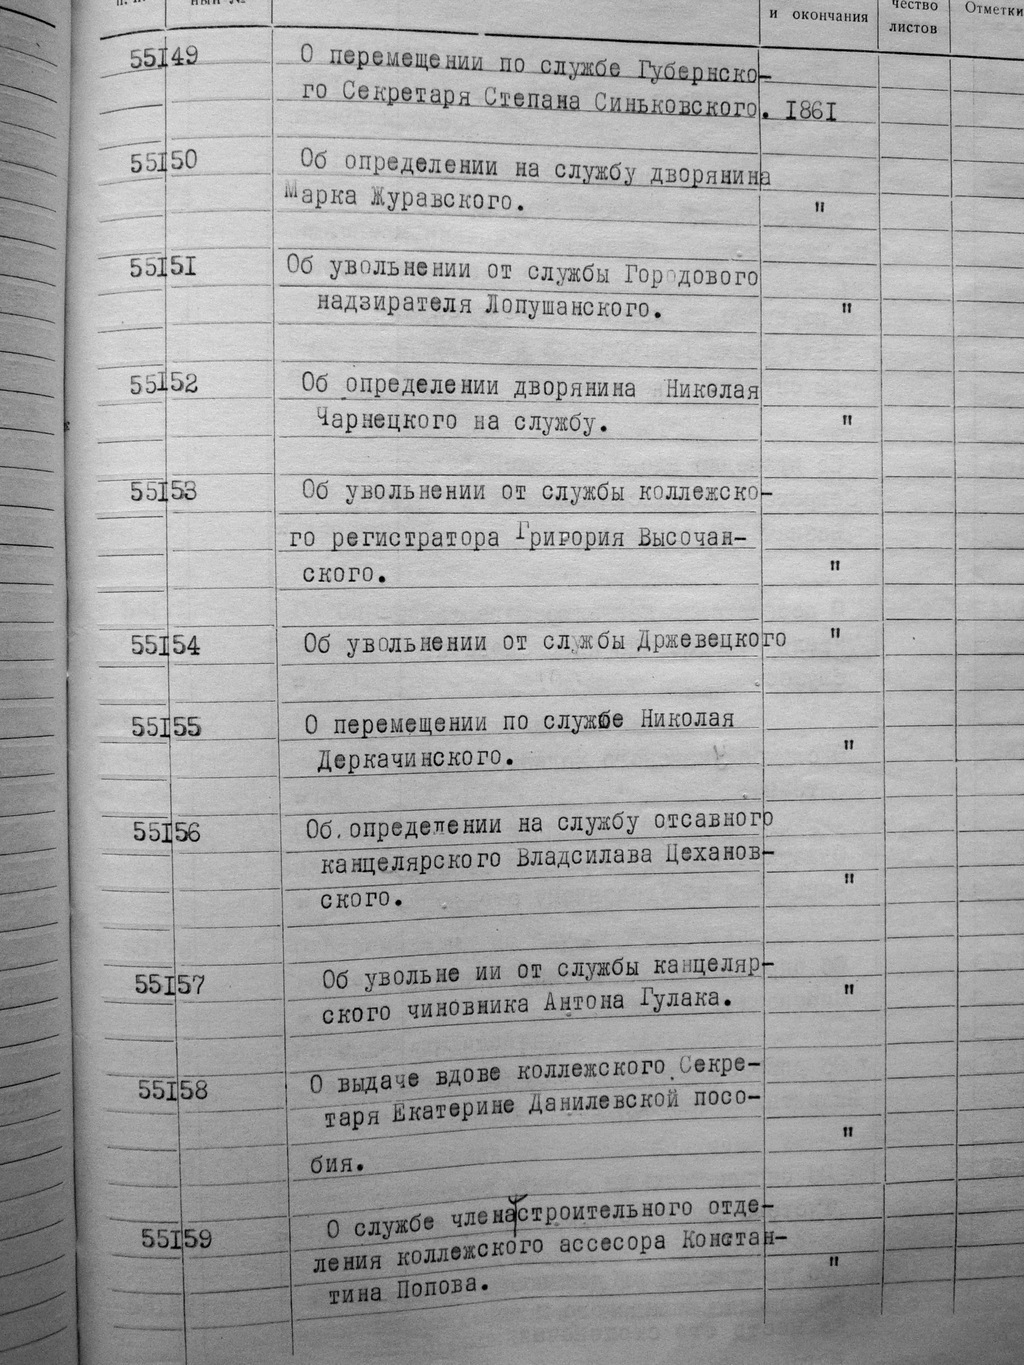 п. п.
ный №
и окончания
чество
листов
Отметки
55I49 О перемещении по службе Губернско-
го Секретаря Степана Синьковского. I86I
55I50 Об определении на службу дворянина
Марка Журавского. "
55I5I Об увольнении от службы Городового
надзирателя Лопушанского. "
55I52 Об определении дворянина Николая
Чарнецкого на службу. "
55I53 Об увольнении от службы коллежско-
го регистратора Григория Высочан-
ского. "
55I54 Об увольнении от службы Држевецкого "
55I55 О перемещении по службе Николая
Деркачинского. "
55I56 Об.определении на службу отсавного
канцелярского Владсилава Цеханов-
ского. "
55I57 Об увольне ии от службы канцеляр-
ского чиновника Антона Гулака. "
55I58 О выдаче вдове коллежского Секре-
таря Екатерине Данилевской посо-
бия. "
55I59 О службе члена строительного отде-
ления коллежского ассесора Констан-
тина Попова. "